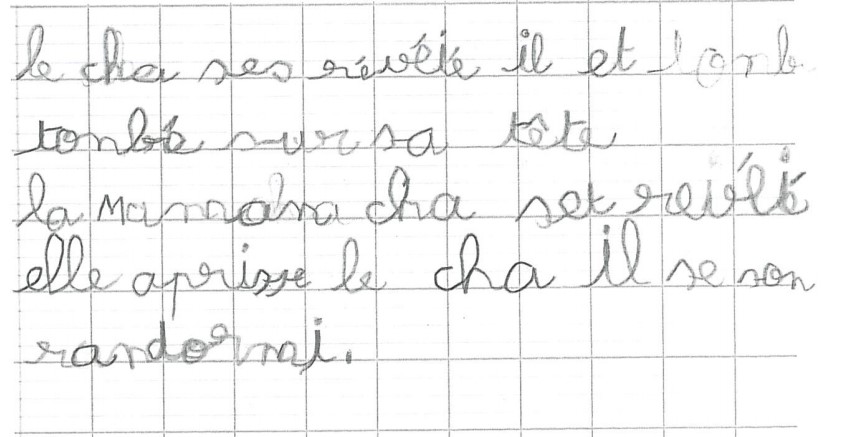 le cha ses révéié il et
tonbé sur sa tête
la Maman cha set revéié
elle aprisse le cha il se son
randormi.